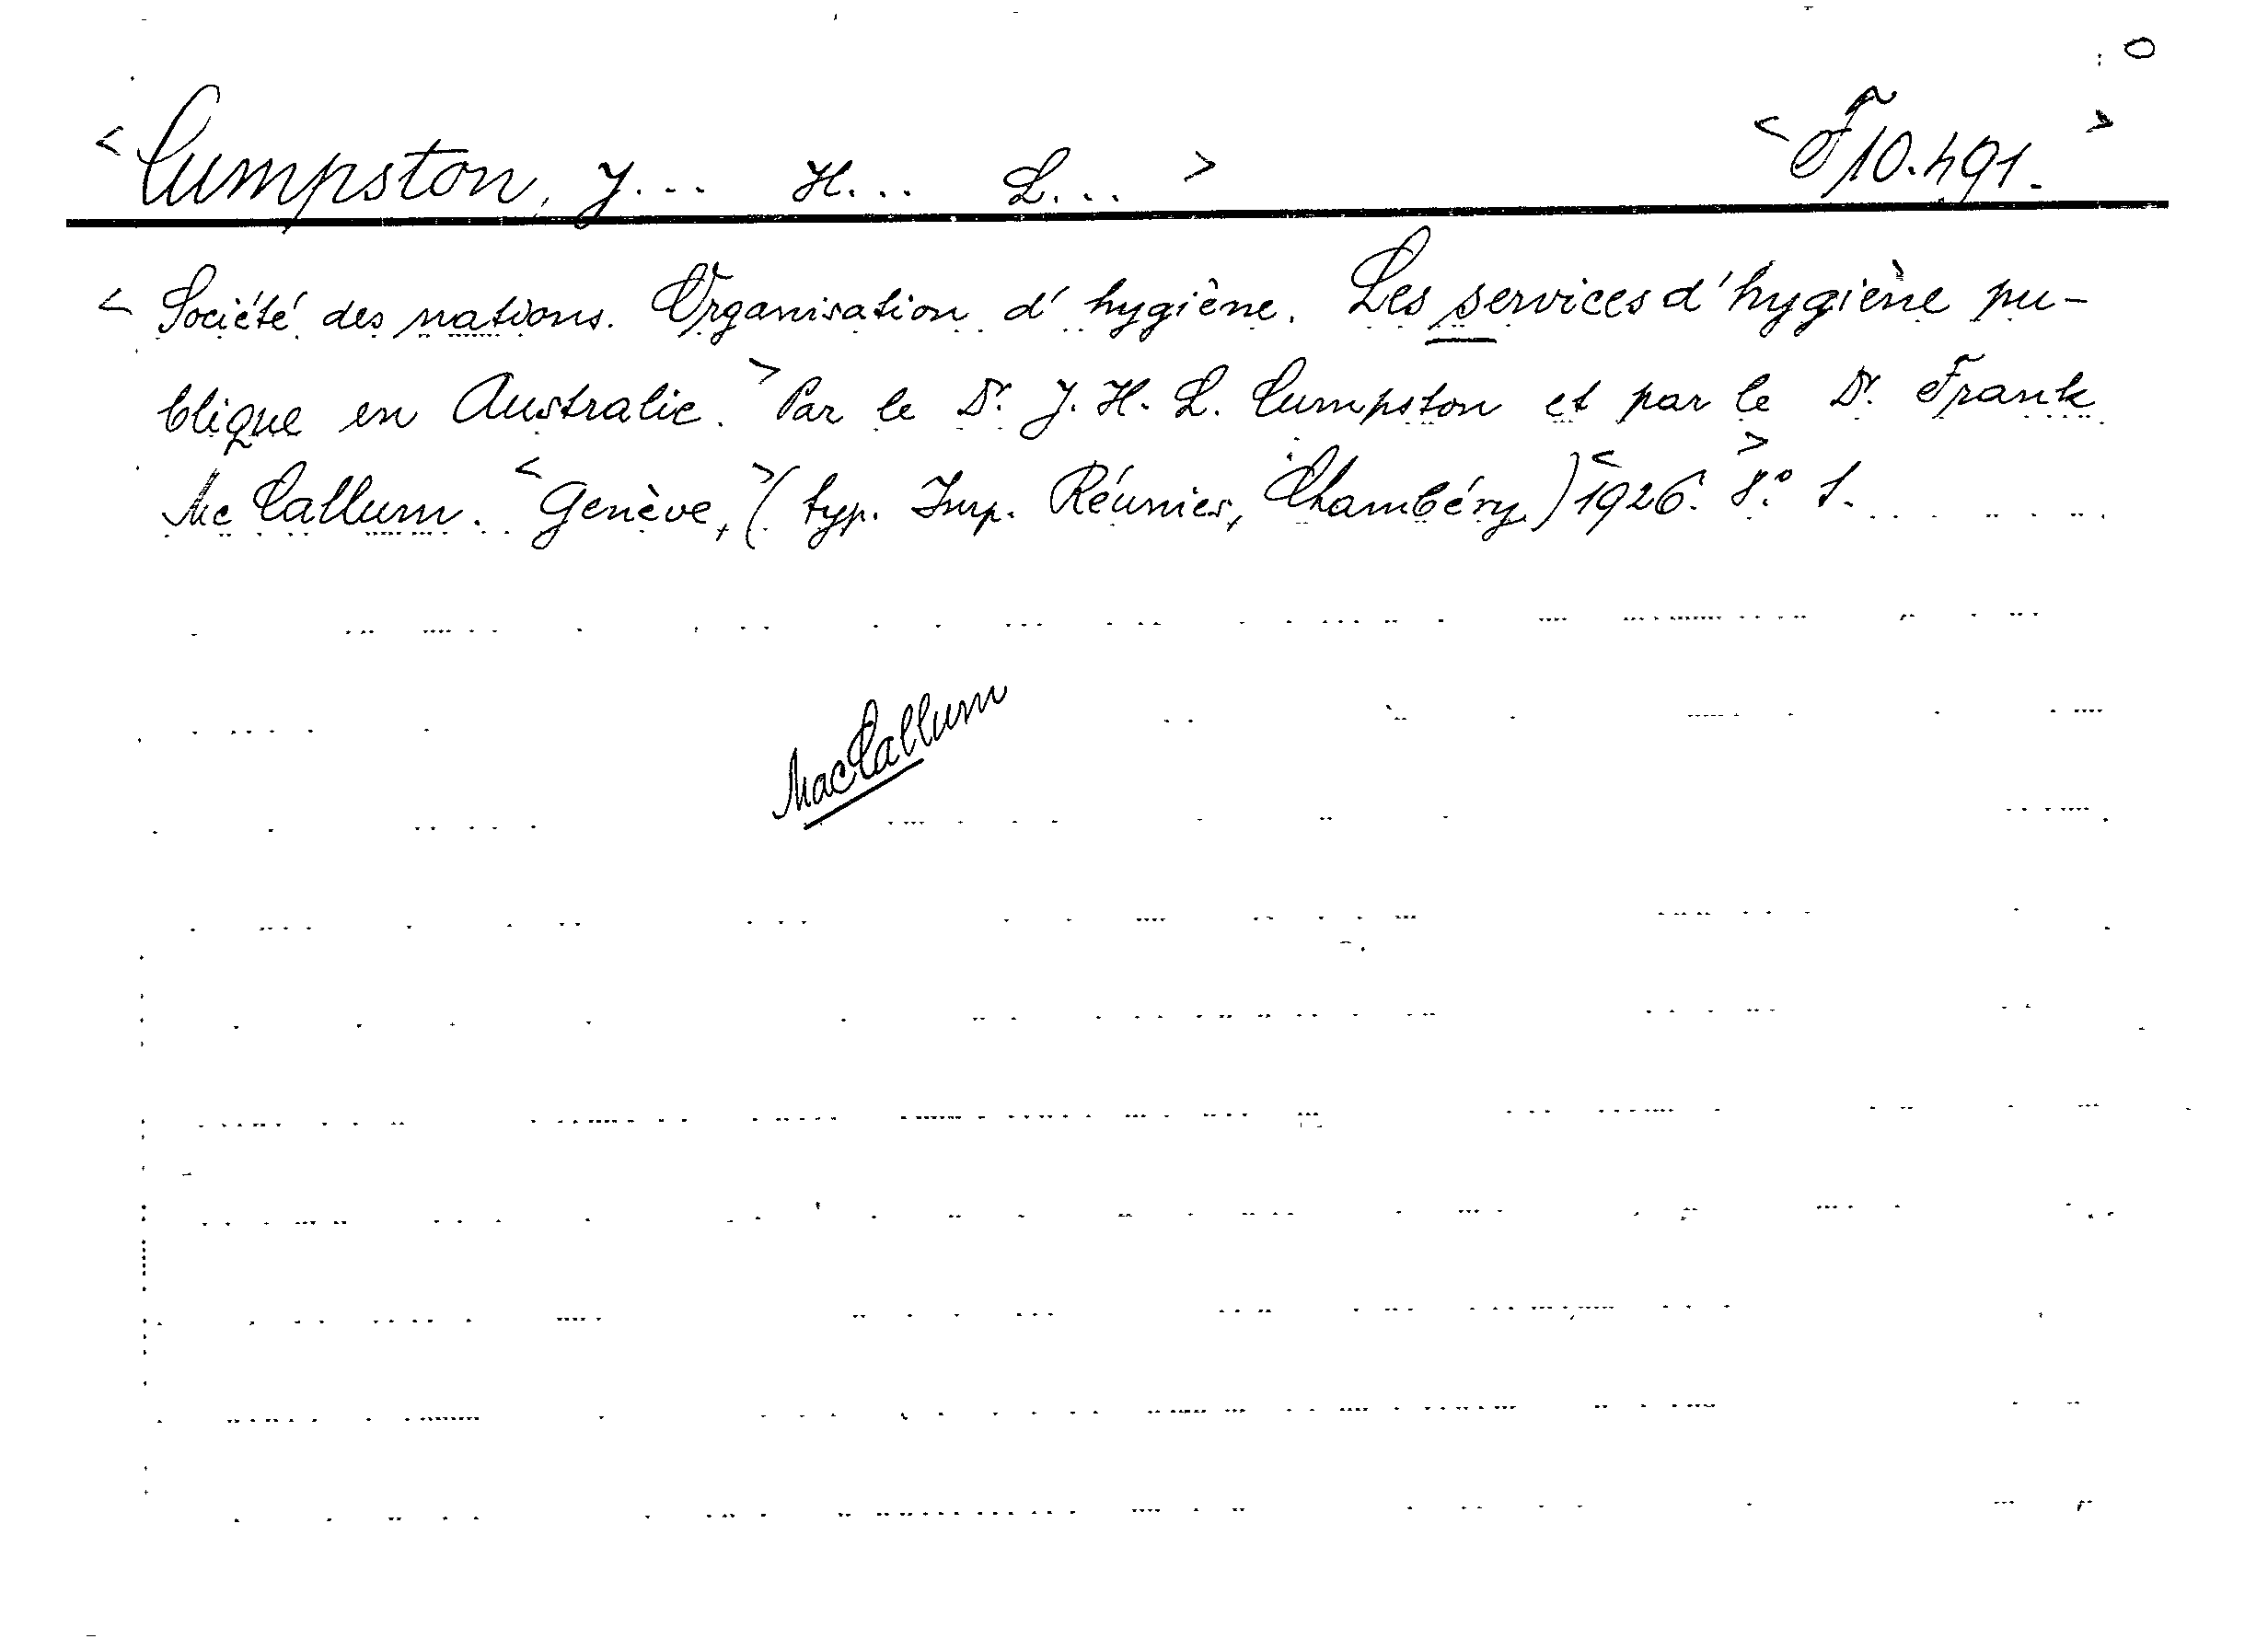 O
< Cumpston, J... H... L... > < F10.491. >
< Société des nations. Organisation d'hygiène. Les services d'hygiène pu-
blique en Australie. > Par le Dr. J. H. L. Cumpston et par le Dr. Frank
Mc Callum. < Genève, > ( typ. Imp. Réunies, Chambéry ) < 1926. > 8.º 1.
MacCallum